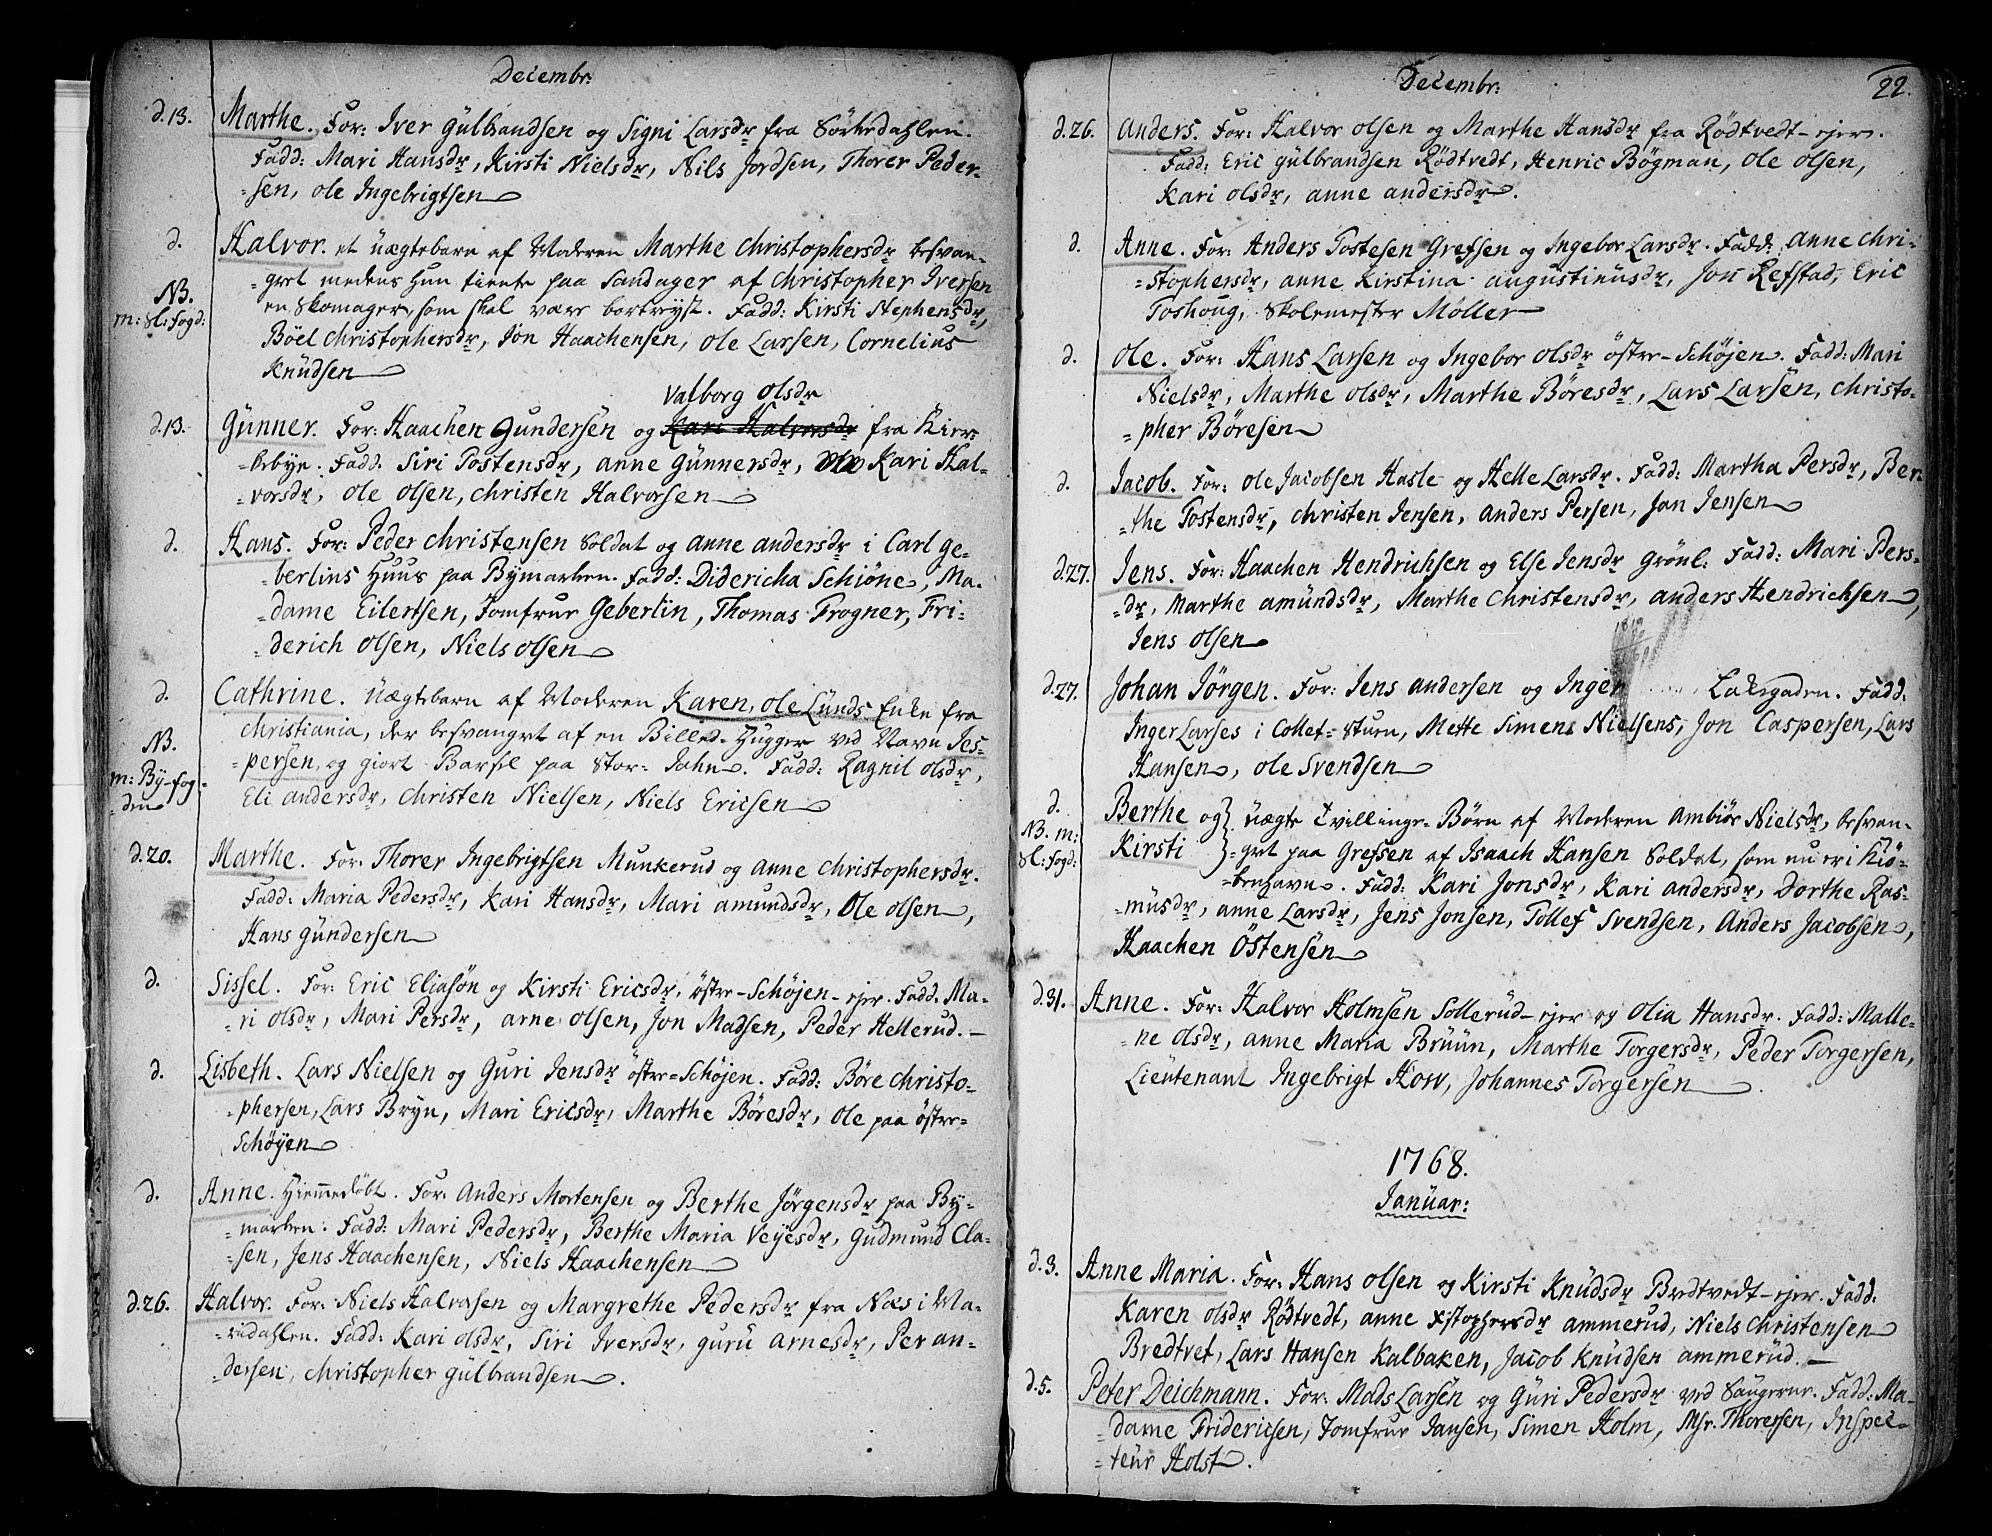 Decembr:
d.13. Marthe. For: Iver Gülbrandsen og Signi Larsdr fra Sörkedahlen.
Fadd: Mari Hansdr, Kirsti Nielsdr, Nils Jordsen, Thorer Peder-
-sen, Ole Ingebrigtsen
d. Halvor. et üægtebarn af Moderen Marthe Christophersdr besvan-
NB. -gret medens hun tiente paa Sandager af Christopher Iversen
m: Sl: fogd: en Skomager, som skal være bortreyst. Fadd: Kirsti Stephensdr,
Böel Christophersdr, Jon Haachensen, Ole Larsen, Cornelius
Knüdsen
Valborg Olsdr
d.13. Günner. For: Haachen Gundersen og Kari Halvorsdr fra Kier-
-bebye. Fadd: Siri Tostensdr, Anne Günnersdr, Kari Hal-
-vorsdr, Ole Olsen, Christen Halvorsen
d. Hans. For: Peder Christensen Soldat og Anne Andersdr i Carl Ge-
-berlins Huus paa Bymarken. Fadd: Didericha Schiöne, Ma-
-dame Eilertsen, Jomfrue Geberlin, Thomas Frogner, Fri-
-derich Olsen, Niels Olsen
d. Cathrine. Uægtebarn af Moderen Karen, Ole Lünds Enke fra
NB. Christiania, der besvangret af en Billed-Hugger ved Navn Jes-
m: By-fog- -persen, og giort Barsel paa Stor-Jahn. Fadd: Ragnil Olsdr,
-den Eli Andersdr, Christen Nielsen, Niels Ericsen
d.20. Marthe. For: Thorer Ingebrigtsen Munkerud og Anne Christophersdr.
Fadd: Maria Pedersdr, Kari Hansdr, Mari Amundsdr, Ole Olsen,
Hans Gündersen
d. Sissel. For: Eric Eliasön og Kirsti Ericsdr, östre-Schöjen-ejer. Fadd: Ma-
-ri Olsdr, Mari Persdr, Arne Olsen, Jon Madsen, Peder Hellerud.
d. Lisbeth. Lars Nielsen og Guri Jensdr östre-Schöjen. Fadd: Böre Christo-
-phersen, Lars Bryn, Mari Ericsdr, Marthe Böresdr, Ole paa östre-
Schöyen
d. Anne. Hiemmedöbt. For: Anders Mortensen og Berthe Jörgensdr paa By-
-marken. Fadd: Mari Pedersdr, Berthe Maria Veyesdr, Gudmund Cla-
-sen, Jens Haachensen, Niels Haachensen
d.26. Halvor. For: Niels Halvorsen og Margrethe Pedersdr fra Næs i Ma-
-ridahlen. Fadd: Kari Olsdr, Siri Iversdr, Guru Arnesdr, Per An-
-dersen, Christopher Gülbrandsen.
Decembr: 22.
d.26. Anders. For: Halvor Olsen og Marthe Hansdr fra Rödtvedt-ejer.
Fadd: Eric Gülbrandsen Rödtvedt, Henric Bögman, Ole Olsen,
Kari Olsdr, Anne Andersdr.
d. Anne. For: Anders Tostesen Grefsen og Ingebor Larsdr. Fadd: Anne Chri-
-stophersdr, Anne Kirstina Augustinüsdr, Jon Refstad, Eric
Toshoug, Skolemester Möller
d. Ole. For: Hans Larsen og Ingebor Olsdr östre-Schöjen. Fadd: Mari
Nielsdr, Marthe Olsdr, Marthe Böresdr, Lars Larsen, Christo-
-pher Böresen
d. Jacob. For: Ole Jacobsen Hasle og Helle Larsdr. Fadd: Martha Persdr, Ber-
-the Tostensdr, Christen Jensen, Anders Persen, Jon Jensen
d.27. Jens. For: Haachen Hendrichsen og Else Jensdr Grönl: Fadd: Mari Pers-
-dr, Marthe Amündsdr, Marthe Christensdr, Anders Hendrichsen,
Jens Olsen
d.27. Johan Jörgen. For: Jens Andersen og Inger Laksegaden. Fadd:
Inger Larses i Collet-Stuen, Mette Simens Nielsens, Jon Caspersen, Lars
Hansen, Ole Svendsen
d. Berthe og } üægte tvillinge-Börn af Moderen Ambiör Nielsdr, besvan-
NB. m: Kirsti } -gret paa Grefsen af Isaach Hansen Soldat, som nu er i Kiö-
Sl: fogd: -benhavn. Fadd: Kari Jonsdr, Kari Andersdr, Dorthe Ras-
-müsdr, Anne Larsdr, Jens Jonsen, Tollef Svendsen, Anders Jacobsen,
Haachen Östensen
d.31. Anne. For: Halvor Holmsen Sollerud-ejer og Olia Hansdr. Fadd: Malle-
-ne Olsdr, Anne Maria Brüün, Marthe Torgersdr, Peder Torgersen,
Lieutenant Ingebrigt How, Johannes Torgersen
1768.
Januar:
d.3. Anne Maria. For: Hans Olsen og Kirsti Knüdsdr Bredtvedt-ejer. Fadd:
Karen Olsdr Rödtvedt, Anne Xstophersdr Ammerud, Niels Christensen
Bredtvet, Lars Hansen Kalbaken, Jacob Knüdsen Ammerüd.
d.5. Peter Deichmann. For: Mads Larsen og Guri Pedersdr ved Saugerne. Fadd: Ma-
-dame Fridericsen, Jomfrue Jansen, Simen Holm, Msr. Thoresen, Inspec-
-teur Holst.